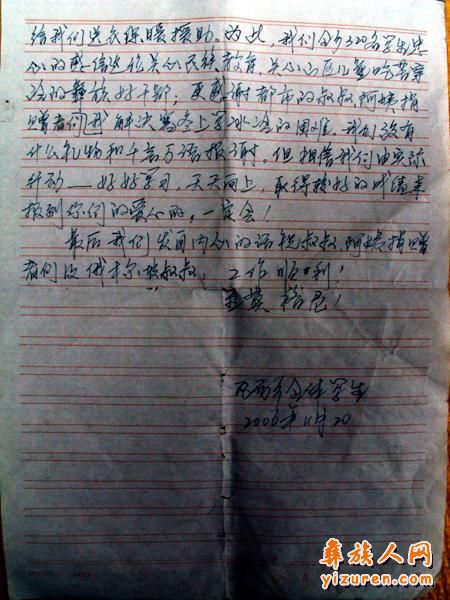 给我们送衣保暖援助。为此，我们全乡320名学生衷
心的感信送给关心民族教育，关心山区儿童吃苦寒
冷的彝族好干部，更感谢都市的叔叔、阿姨捐
赠者们我解决寒冬上学冰冷的困难。我们没有
什么礼物和千言万语报谢，但相信我们由实际
行动——好好学习，天天向上，取得捞好的成绩来
报到你们的爱心的，一定会！
最后我们发自内心的话祝叔叔、阿姨捐赠
者们及俄木尔 叔叔：工作顺利！
学生
2006年11月20
彝族人网
yizuren.com